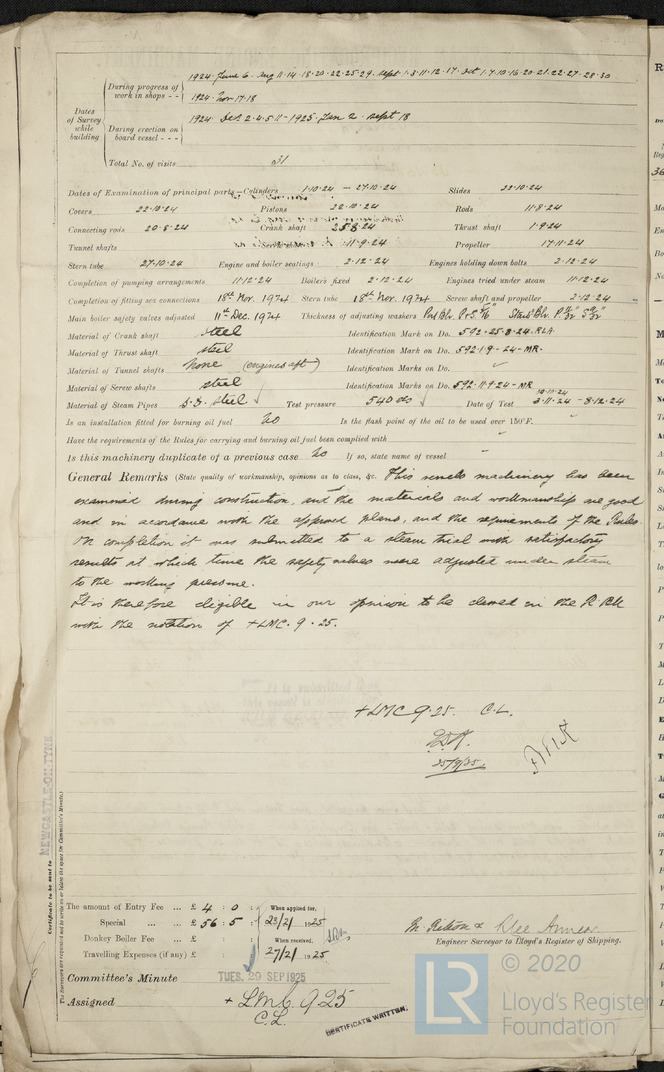 1924 June 6 Aug 11-14-18-20-22-25-29 Sept 1-3-11-12-17 Oct 1-7-10-16-20-21-22-27-28-30
During progress of work in shops - -
1924 Nov 17-18
Dates of Survey while building
1924 Dec 2-4-5-11 - 1925 Jan 2 Sept 18
During erection on board vessel - - -
Total No. of visits 31
Dates of Examination of principal parts—Cylinders 1-10-24 — 27-10-24 Slides 22-10-24
Covers 22-10-24 Pistons 22-10-24 Rods 11-8-24
Connecting rods 20-8-24 Crank shaft 25-8-24 Thrust shaft 1-9-24
Tunnel shafts Screw shaft 11-9-24 Propeller 17-11-24
Stern tube 27-10-24 Engine and boiler seatings 2-12-24 Engines holding down bolts 2-12-24
Completion of pumping arrangements 11-12-24 Boilers fixed 2-12-24 Engines tried under steam 11-12-24
Completion of fitting sea connections 18th Nov. 1924 Stern tube 18th Nov. 1924 Screw shaft and propeller 2-12-24
Main boiler safety valves adjusted 11th Dec. 1924 Thickness of adjusting washers
Material of Crank shaft Steel Identification Mark on Do. 592-25-8-24-RLA
Material of Thrust shaft steel Identification Mark on Do. 592-1-9-24-MR-
Material of Tunnel shafts None (engines aft) Identification Marks on Do.
Material of Screw shafts steel Identification Marks on Do. 592-11-9-24-MR
Material of Steam Pipes S.D. Steel Test pressure 540 lbs Date of Test 3-11-24 10-11-24 -8-12-24
Is an installation fitted for burning oil fuel No Is the flash point of the oil to be used over 150°F.
Have the requirements of the Rules for carrying and burning oil fuel been complied with
Is this machinery duplicate of a previous case No If so, state name of vessel
General Remarks (State quality of workmanship, opinions as to class, &c. This vessels machinery has been
examined during construction, and the materials and workmanship are good
and in accordance with the approved plans, and the requirements of the Rules.
On completion it was submitted to a steam trial with satisfactory
results at which time the safety valves were adjusted under steam
to the working pressure.
It is therefore eligible in our opinion to be classed in the R Bk
with the notation of +LMC. 9.25.
+LMC 9.25. C.L.
25/9/25.
Certificate to be sent to NEWCASTLE-ON-TYNE
The Surveyors are requested not to write on or below the space for Committee's Minute.
The amount of Entry Fee ... £ 4 : 0 : When applied for,
Special ... ... £ 56 : 5 : 23/2/1925
Donkey Boiler Fee ... £ : : When received,
Travelling Expenses (if any) £ : : 27/2/1925
Engineer Surveyor to Lloyd's Register of Shipping.
Committee's Minute TUES. 29 SEP 1925
Assigned + LMC 9 25
C.L.
CERTIFICATE WRITTEN.
LR © 2020
Lloyd's Register
Foundation